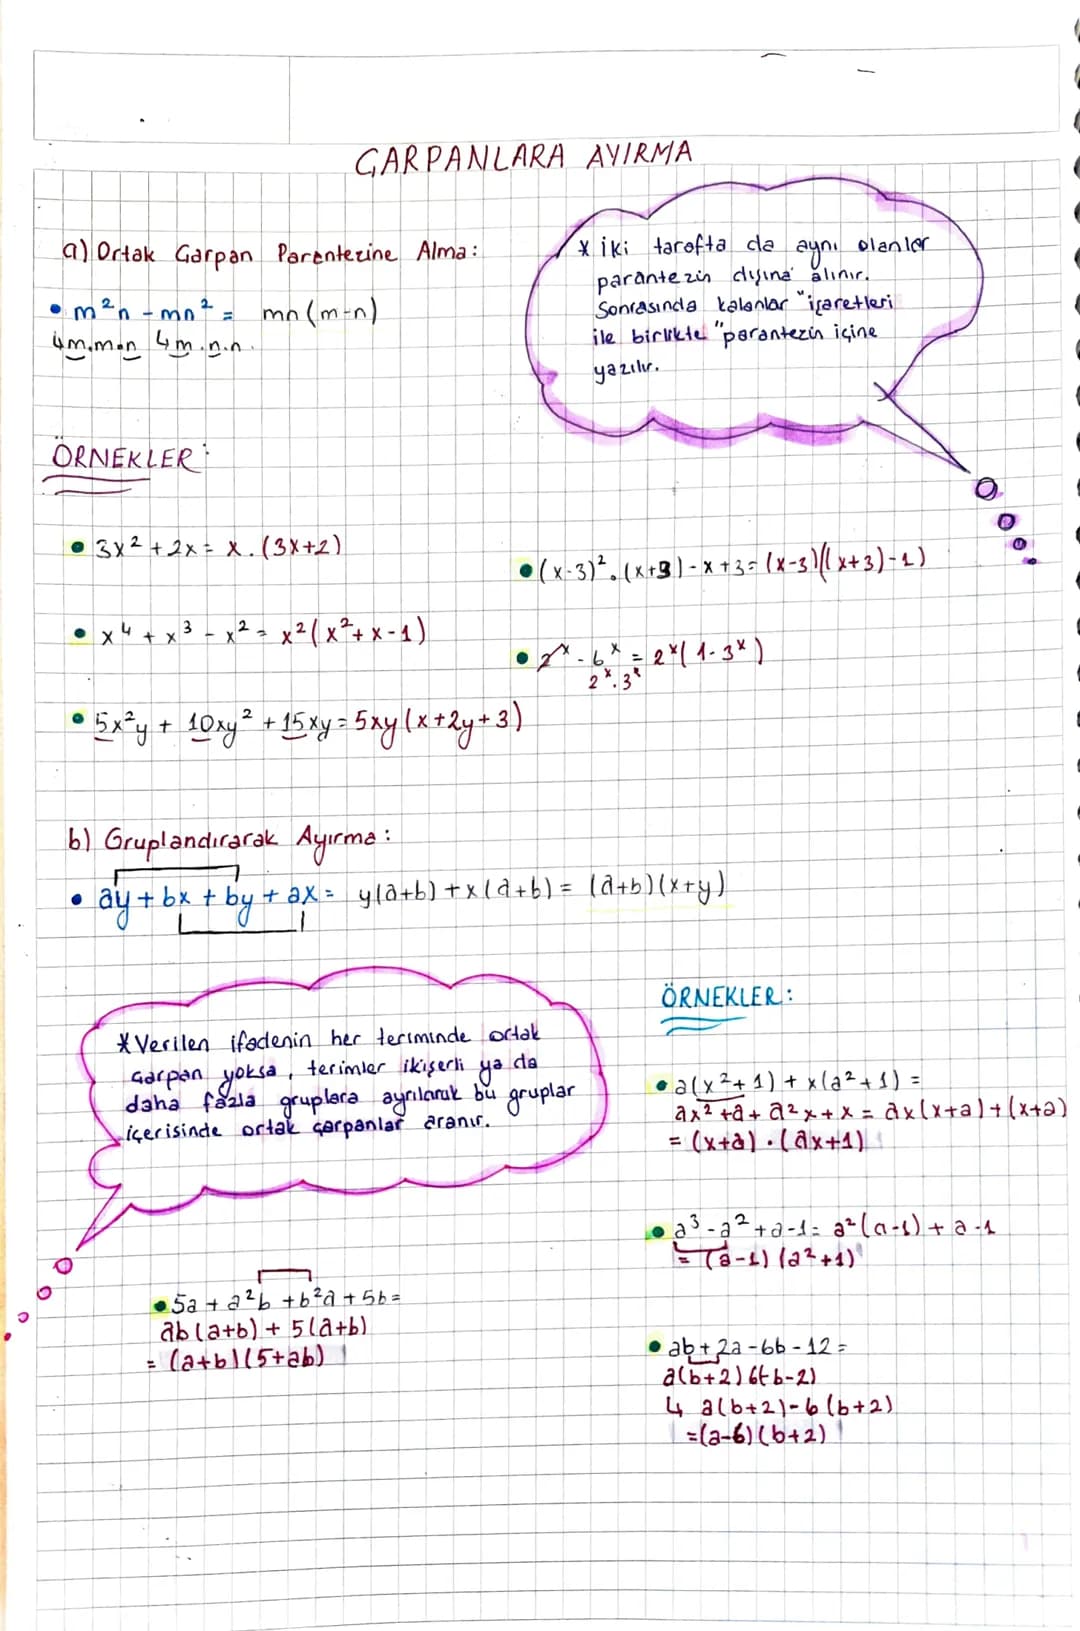 ÇARPANLARA AYIRMA
a) Ortak Çarpan Parantezine Alma:
• m²n - mn² = mn(m-n)
↳m.m.n ↳m.n.n
* İki tarafta da aynı olanlar
parantezin dışına alınır.
Sonrasında kalanlar "işaretleri
ile birlikte" parantezin içine
yazılır.
ÖRNEKLER:
• 3x² + 2x = x.(3x+2)
• (x-3)².(x+3)-x+3=(x-3)((x+3)-1)
• x⁴ + x³ - x² = x²(x²+x-1)
• 2ˣ - 6ˣ = 2ˣ(1-3ˣ)
2ˣ.3ˣ
• 5x²y + 10xy² + 15xy = 5xy(x+2y+3)
b) Gruplandırarak Ayırma:
• ay + bx + by + ax = y(a+b)+x(a+b) = (a+b)(x+y)
* Verilen ifadenin her teriminde ortak
çarpan yoksa, terimler ikişerli ya da
daha fazla gruplara ayrılarak bu gruplar
içerisinde ortak çarpanlar aranır.
• 5a + a²b + b²a + 5b =
ab(a+b) + 5(a+b)
= (a+b)(5+ab)
ÖRNEKLER:
• a(x²+1) + x(a²+1) =
ax²+a+a²x+x = ax(x+a)+(x+a)
= (x+a).(ax+1)
• a³-a²+a-1= a²(a-1) + a-1
= (a-1)(a²+1)
• ab+2a-6b-12=
a(b+2)6(-b-2)
↳ a(b+2)-6(b+2)
=(a-6)(b+2)